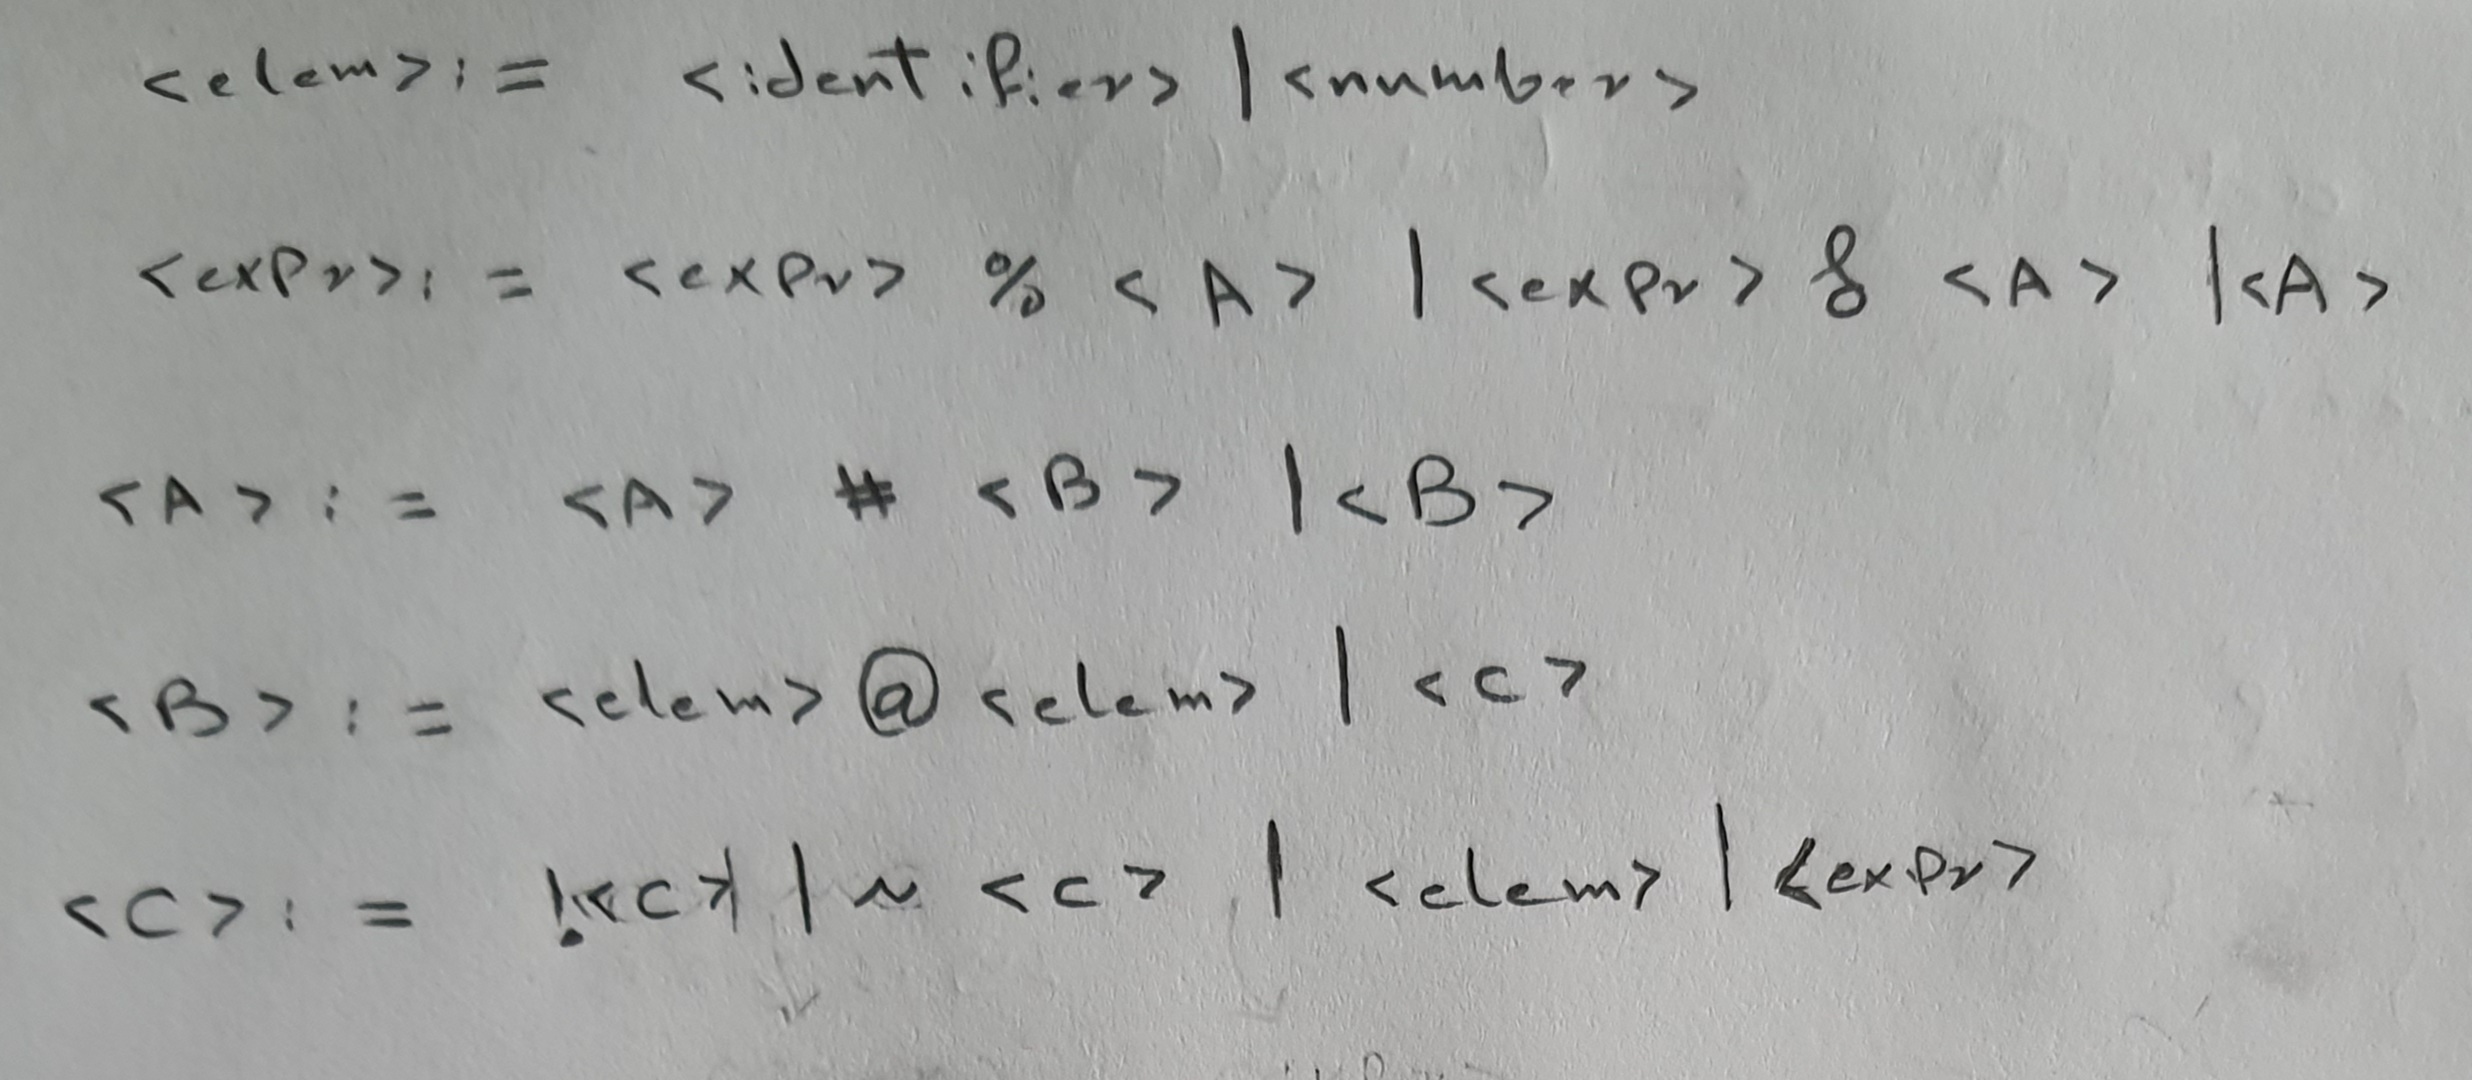 <elem> := <identifier> | <number>
<expr> := <expr> % <A> | <expr> & <A> | <A>
<A> := <A> # <B> | <B>
<B> := <elem> @ <elem> | <C>
<C> := !<C> | ~ <C> | <elem> | <expr>